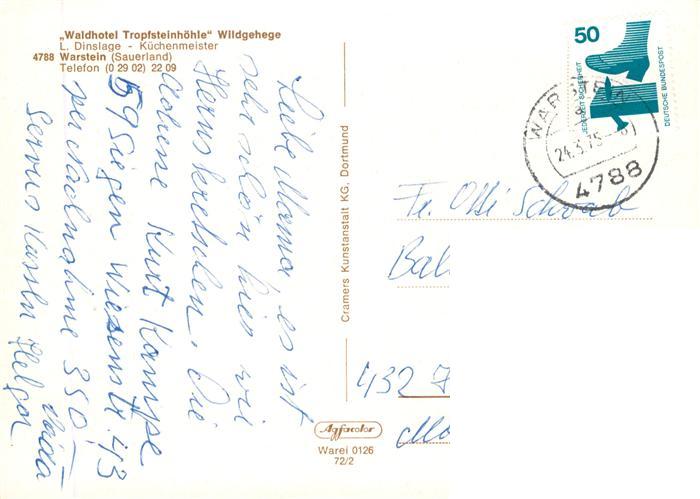 „Waldhotel Tropfsteinhöhle" Wildgehege
L. Dinslage - Küchenmeister
4788 Warstein (Sauerland)
Telefon (0 29 02) 22 09
Liebe Mama es ist
sehr schön hier wir
Die
Adresse Kurt Kampe
59 Siegen Wiesenstr. 43
per Nachnahme 350,-
Servus Helga
Cramers Kunstanstalt KG. Dortmund
Agfacolor
Warei 0126
72/2
50
JEDERZEIT SICHERHEIT
DEUTSCHE BUNDESPOST
WARSTEIN 1
24.3.75
4788
Fr. Otti Schwab
432